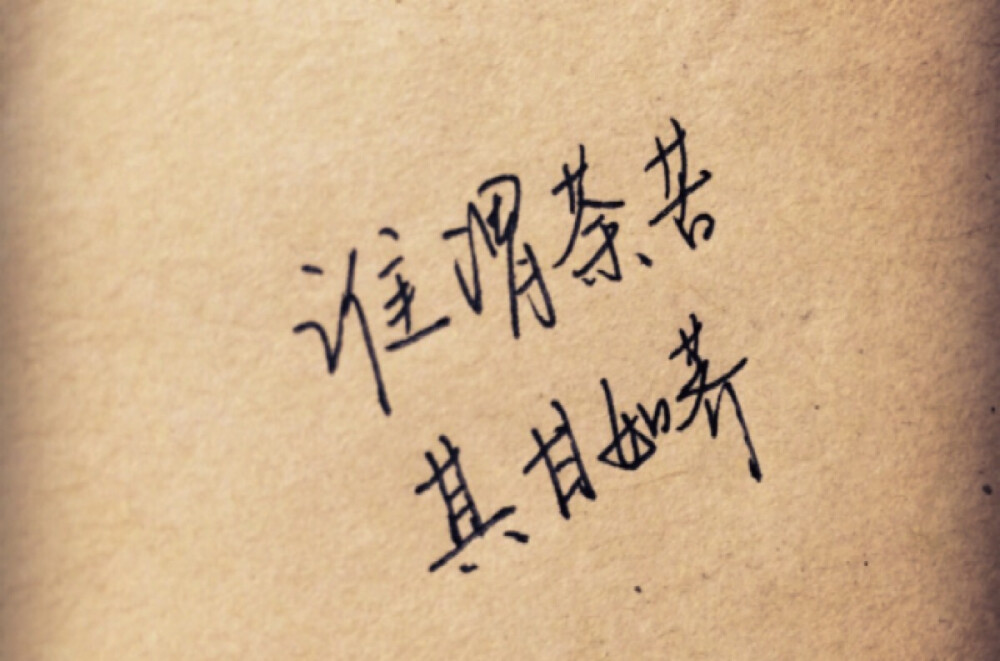 谁谓荼苦
其甘如荠